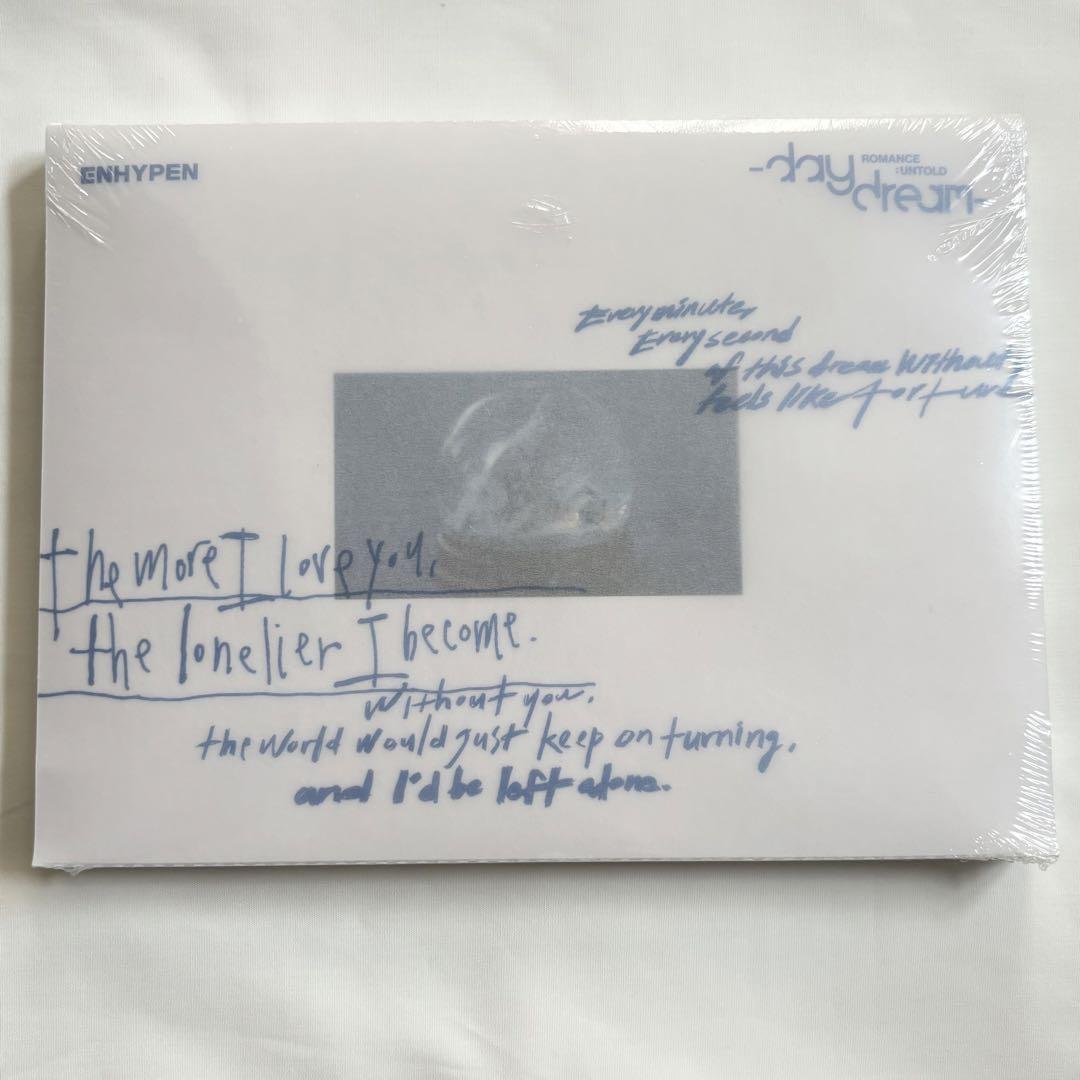 ENHYPEN
-day
ROMANCE
:UNTOLD
dream-
Every minute,
Every second
of this dream without
feels like torture
the more I love you,
the lonelier I become.
without you,
the world would just keep on turning,
and I'd be left alone.